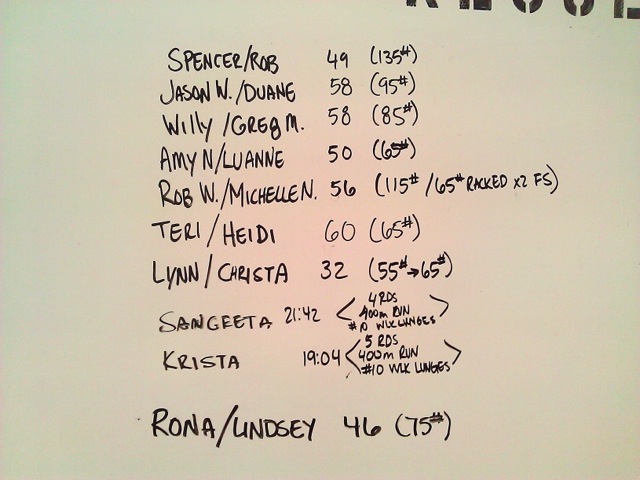 SPENCER/ROB 49 (135#)
JASON W./DUANE 58 (95#)
Willy/GREG M. 58 (85#)
AMY N/LUANNE 50 (65#)
ROB W./MICHELLE N. 56 (115#/65# RACKED x2 FS)
TERI/HEIDI 60 (65#)
LYNN/CHRISTA 32 (55#→65#)
4 RDS
SANGEETA 21:42 < 400m RUN >
#10 WLK LUNGES
5 RDS
KRISTA 19:04 < 400m RUN >
#10 WLK LUNGES
RONA/LINDSEY 46 (75#)